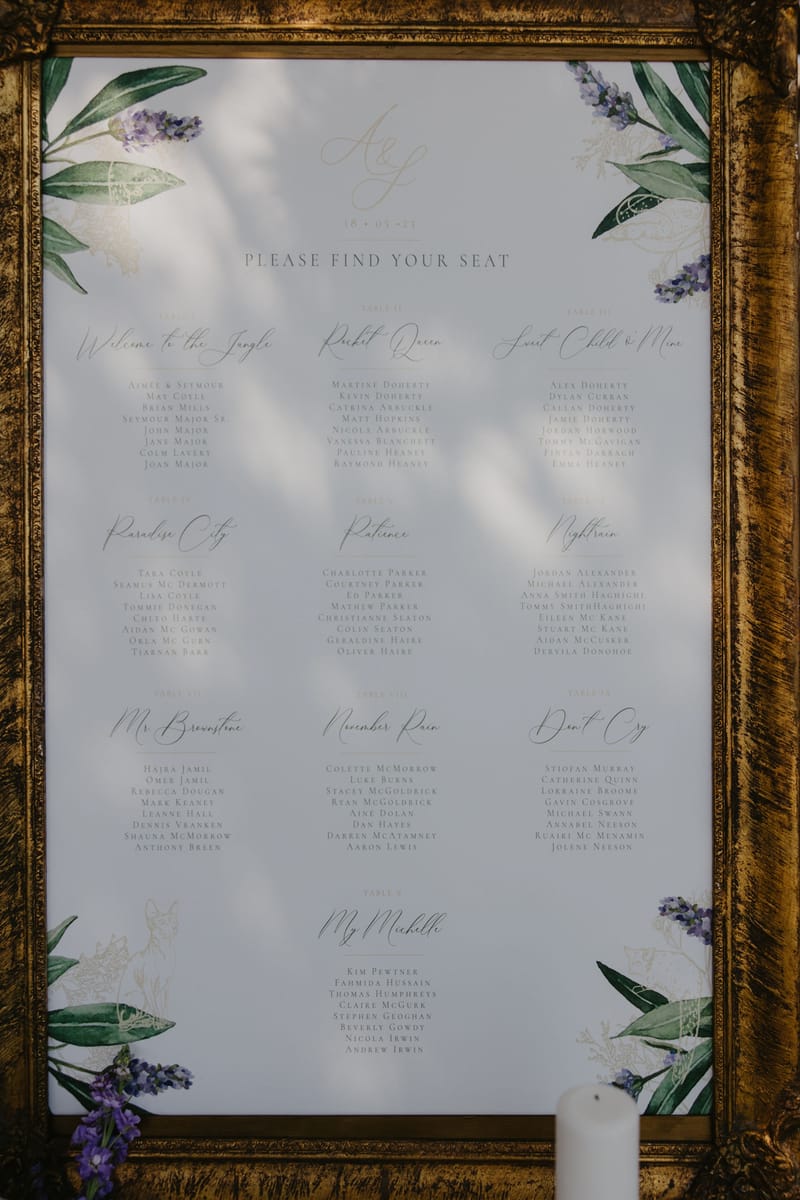 A&S
18 • 05 • 23
PLEASE FIND YOUR SEAT
TABLE I
Welcome to the Jungle
AIMÉE & SEYMOUR
MAY COYLE
BRIAN MILLS
SEYMOUR MAJOR SR.
JOHN MAJOR
JANE MAJOR
COLM LAVERY
JOAN MAJOR
TABLE II
Rocket Queen
MARTINE DOHERTY
KEVIN DOHERTY
CATRINA ARBUCKLE
MATT HOPKINS
NICOLE ARBUCKLE
VANESSA BLANCHETT
PAULINE HEANEY
RAYMOND HEANEY
TABLE III
Sweet Child o' Mine
ALEX DOHERTY
DYLAN CURRAN
CALLAN DOHERTY
JAMIE DOHERTY
JORDAN HORWOOD
TOMMY MCGAVIGAN
FINTAN DARRAGH
EMMA HEANEY
TABLE IV
Paradise City
TARA COYLE
SEAMUS MC DERMOTT
LISA COYLE
TOMMIE DONEGAN
CHLEO HARTE
AIDAN MC GOWAN
ORLA MC GURN
TIARNAN BARR
TABLE V
Patience
CHARLOTTE PARKER
COURTNEY PARKER
ED PARKER
MATHEW PARKER
CHRISTIANNE SEATON
COLIN SEATON
GERALDINE HAIRE
OLIVER HAIRE
TABLE VI
Nightrain
JORDAN ALEXANDER
MICHAEL ALEXANDER
ANNA SMITH HAGHIGHI
TOMMY SMITHHAGHIGHI
EILEEN MC KANE
STUART MC KANE
AIDAN MCCUSKER
DERVILA DONOHOE
TABLE VII
Mr. Brownstone
HAJRA JAMIL
OMER JAMIL
REBECCA DOUGAN
MARK KEANEY
LEANNE HALL
DENNIS VRANKEN
SHAUNA MCMORROW
ANTHONY BREEN
TABLE VIII
November Rain
COLETTE MCMORROW
LUKE BURNS
STACEY MCGOLDRICK
RYAN MCGOLDRICK
AINE DOLAN
DAN HAYES
DARREN MCATAMNEY
AARON LEWIS
TABLE IX
Don't Cry
STIOFAN MURRAY
CATHERINE QUINN
LORRAINE BROOME
GAVIN COSGROVE
MICHAEL SWANN
ANNABEL NEESON
RUAIRI MC MENAMIN
JOLENE NEESON
TABLE X
My Michelle
KIM PEWTNER
FAHMIDA HUSSAIN
THOMAS HUMPHREYS
CLAIRE MCGURK
STEPHEN GEOGHAN
BEVERLY GOWDY
NICOLA IRWIN
ANDREW IRWIN